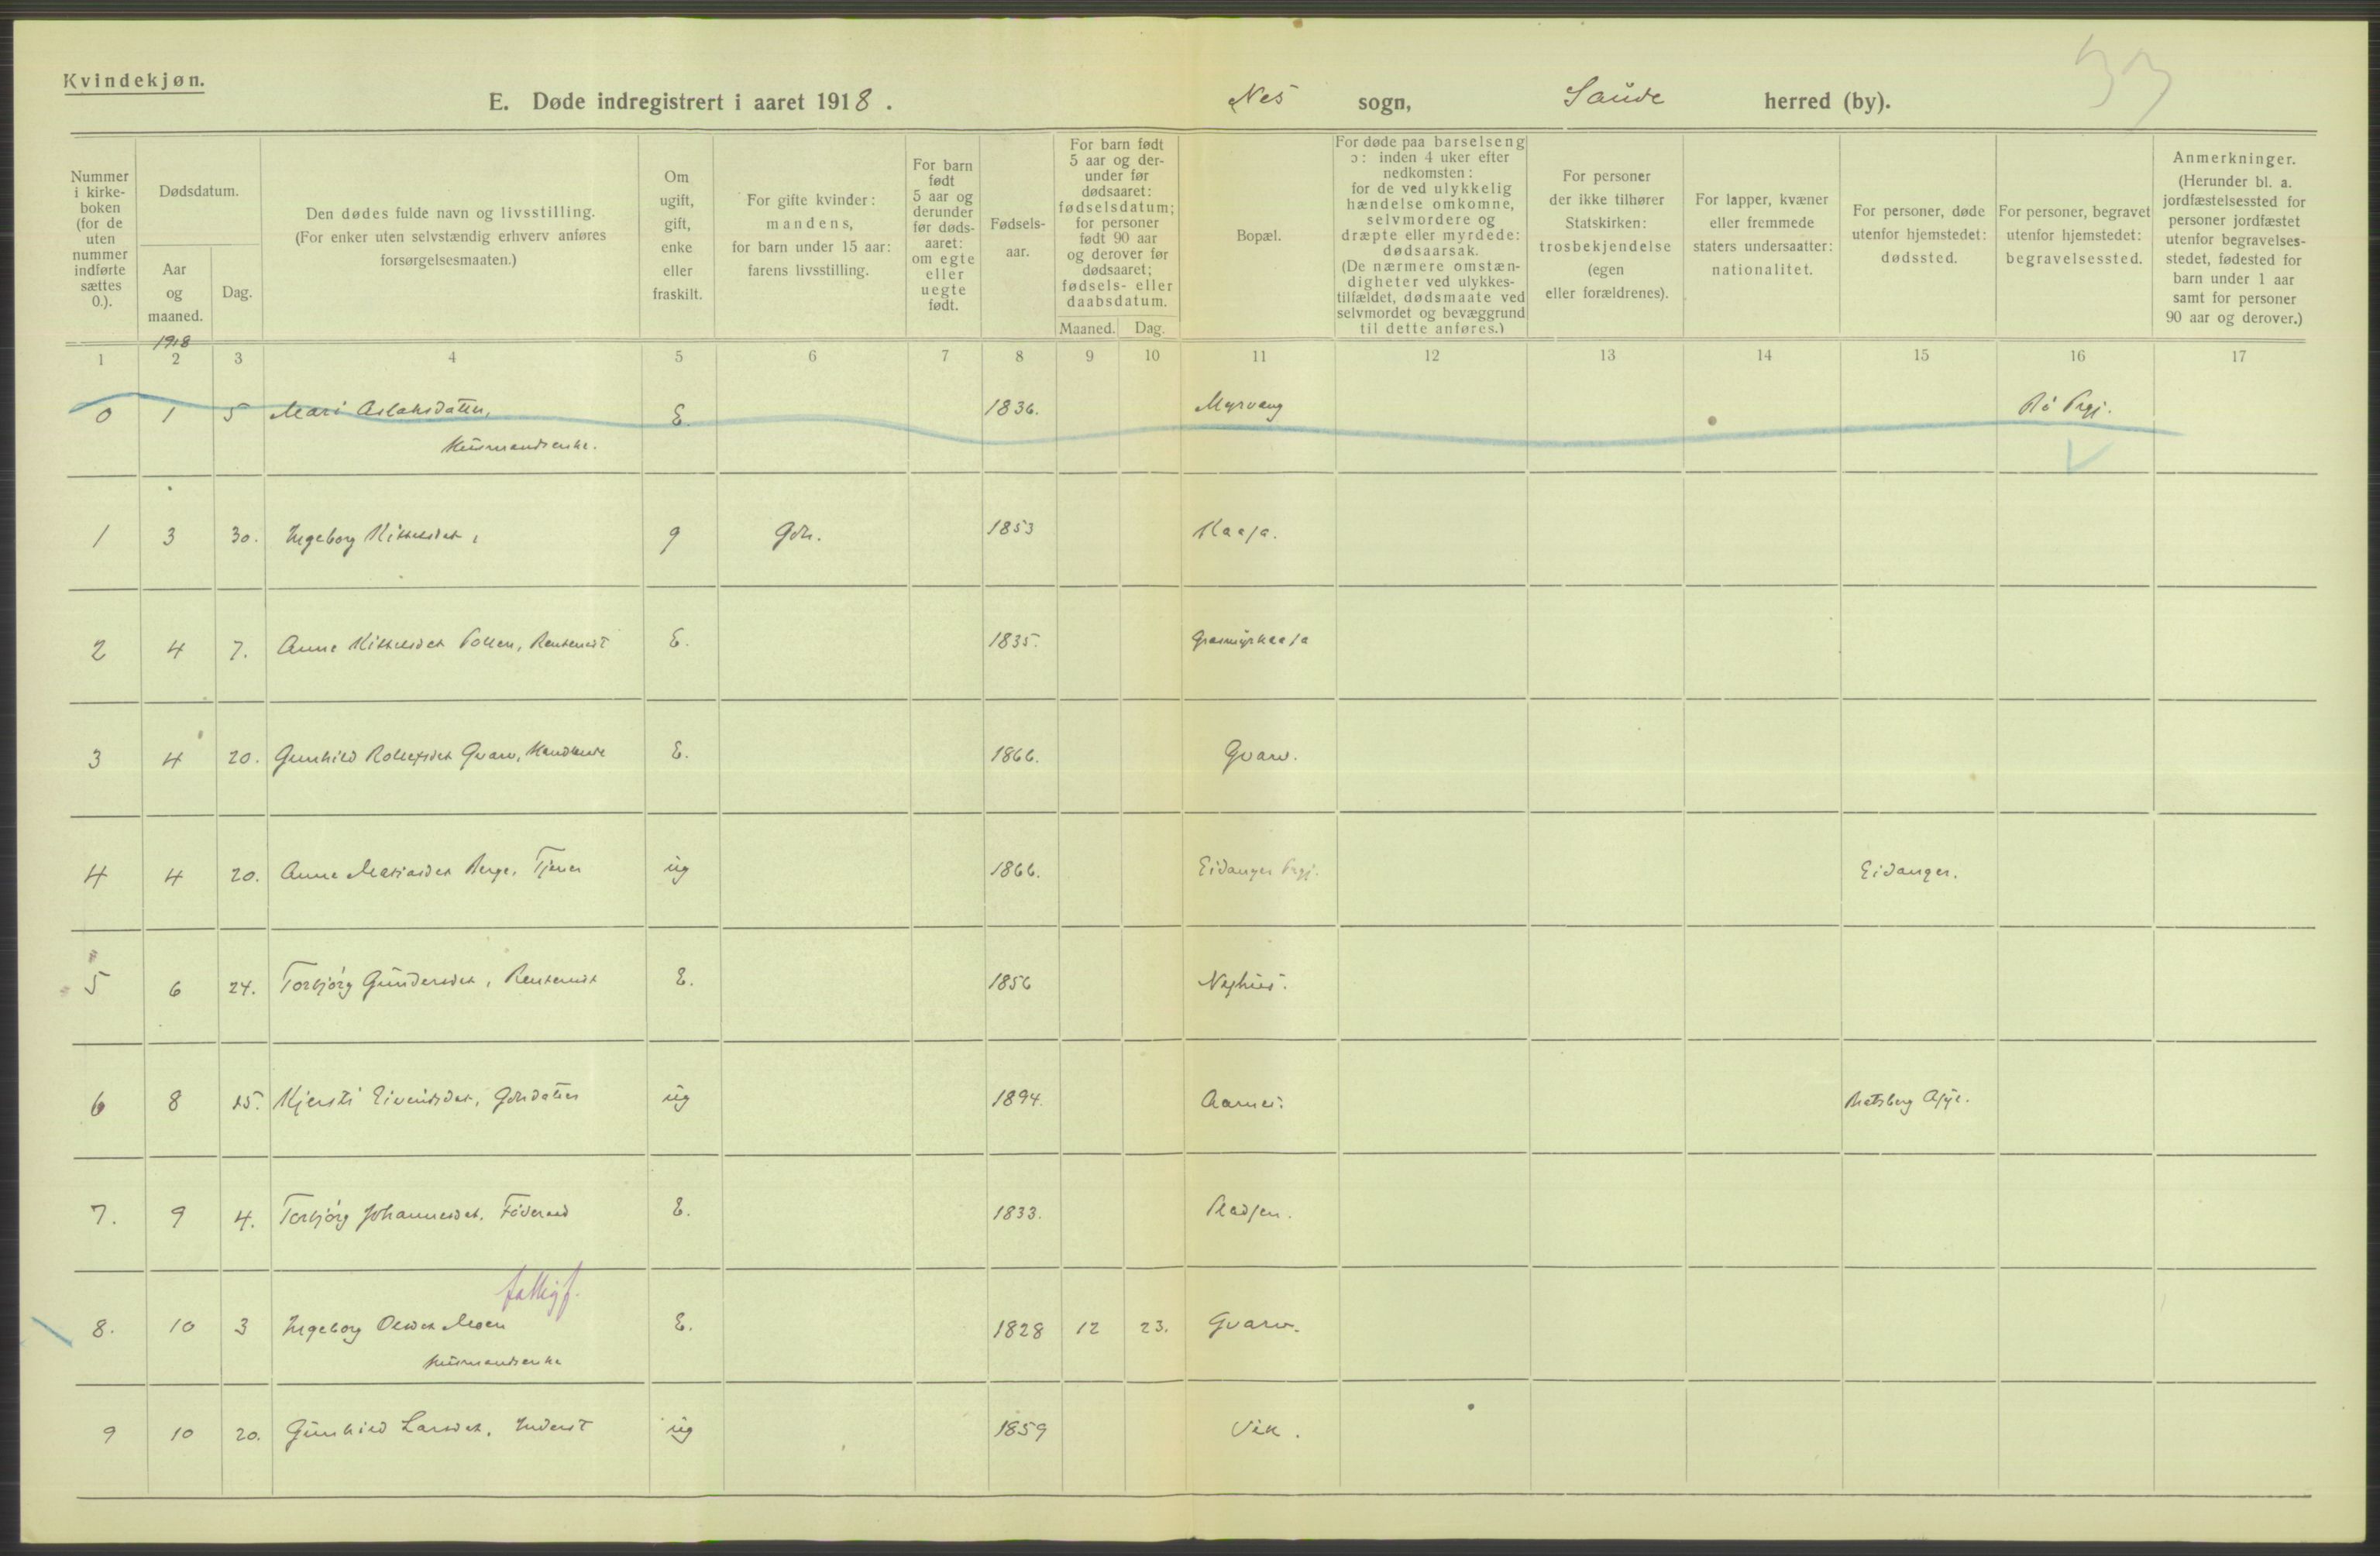 Kvindekjøn.
E. Døde indregistrert i aaret 1918.
Nes sogn, Saude herred (by).
33
Nummer i kirke-boken (for de uten nummer indførte sættes 0.).
Dødsdatum.
Aar og maaned.
Dag.
Den dødes fulde navn og livsstilling.
(For enker uten selvstændig erhverv anføres
forsørgelsesmaaten.)
Om ugift, gift, enke eller fraskilt.
For gifte kvinder: mandens, for barn under 15 aar: farens livsstilling.
For barn født 5 aar og derunder før døds-aaret: om egte eller uegte født.
Fødsels-aar.
For barn født 5 aar og der-under før dødsaaret: fødselsdatum; for personer født 90 aar og derover før dødsaaret; fødsels- eller daabsdatum.
Maaned. Dag.
Bopæl.
For døde paa barselseng ɔ: inden 4 uker efter nedkomsten: for de ved ulykkelig hændelse omkomne, selvmordere og dræpte eller myrdede: dødsaarsak. (De nærmere omstæn-digheter ved ulykkes-tilfældet, dødsmaate ved selvmordet og bevæggrund til dette anføres.)
For personer der ikke tilhører Statskirken: trosbekjendelse (egen eller forældrenes).
For lapper, kvæner eller fremmede staters undersaatter: nationalitet.
For personer, døde utenfor hjemstedet: dødssted.
For personer, begravet utenfor hjemstedet: begravelsessted.
Anmerkninger. (Herunder bl. a. jordfæstelsessted for personer jordfæstet utenfor begravelses-stedet, fødested for barn under 1 aar samt for personer 90 aar og derover.)
1918
1 2 3 4 5 6 7 8 9 10 11 12 13 14 15 16 17
0 1 5 Mari Aslaksdatter, E. 1836. Myrvang Bø Prgj.
Husmandsenke.
1 3 30. Ingeborg Kittelsdat, g Gdr. 1853 Kaasa.
2 4 7. Anne Kittelsdat Pollen, Rentenist E. 1835. Grasmyrkaasa
3 4 20. Gunhild Rollefsdat Gvarv, E. 1866. Gvarv.
4 4 20. Anne Mariasdat Berge, Tjener ug 1866. Eidanger Prgj. Eidanger.
5 6 24. Torbjørg Gundersdat, Rentenist E. 1856 Neshus.
6 8 15. Kjersti Eivindsdat, Gdrdatter ug 1894. Aarnes. Bratsberg Asyl.
7. 9 4. Torbjørg Johannesdat. Føderaad E. 1833. Pladsen.
fattigf.
8. 10 3 Ingeborg Olsdat Moen E. 1828 12 23. Gvarv.
Husmandsenke
9 10 20. Gunhild Larsdat. Inderst ug 1859 Vik.